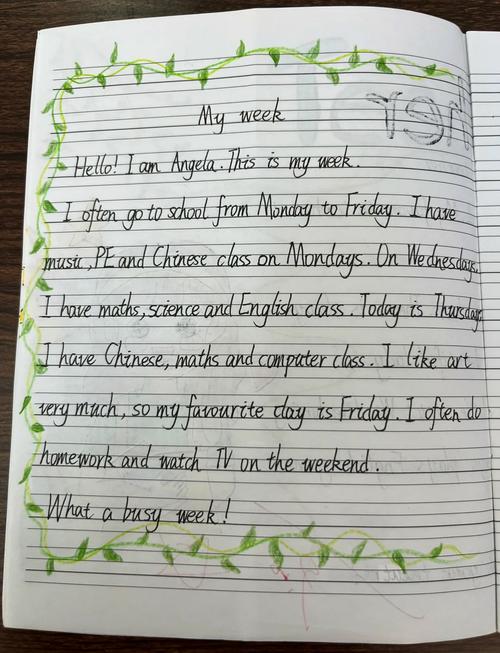 My week
Hello! I am Angela. This is my week.
I often go to school from Monday to Friday. I have
music, PE and Chinese class on Mondays. On Wednesdays,
I have maths, science and English class. Today is Thursday.
I have Chinese, maths and computer class. I like art
very much, so my favourite day is Friday. I often do
homework and watch TV on the weekend.
What a busy week!